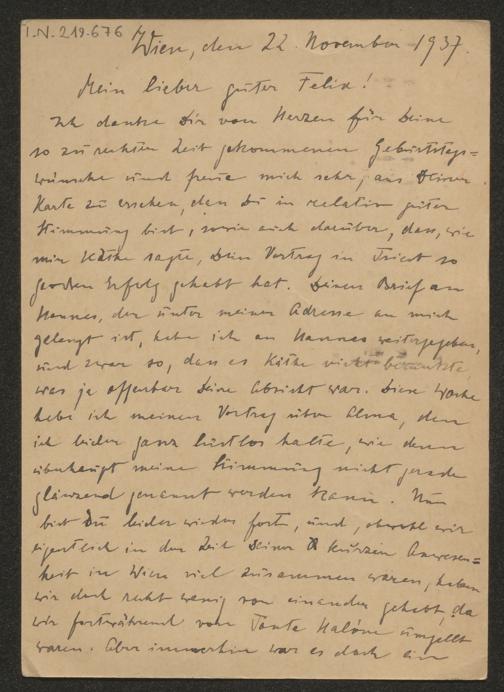 I.N. 219.676
Wien, den 22. November 1937.
Mein lieber guter Felix!
Ich danke Dir von Herzen für Deine
so zu rechten Zeit gekommenen Geburtstags=
wünsche und freue mich sehr, aus Deiner
Karte zu ersehen, dass Du in relativ guter
Stimmung bist, sowie auch darüber, dass, wie
mir Käthe sagte, Dein Vortrag in Triest so
großen Erfolg gehabt hat. Deinen Brief an
Hannes, der unter meiner Adresse an mich
gelangt ist, habe ich an Hannes weitergegeben,
und zwar so, dass es Käthe nicht bemerkte,
was ja offenbar Deine Absicht war. Diese Woche
habe ich meinen Vortrag über Alma, den
ich leider ganz lustlos halte, wie denn
überhaupt meine Stimmung nicht gerade
glänzend genannt werden kann. Nun
bist Du leider wieder fort, und, obwohl wir
eigentlich in der Zeit Deiner kurzen Anwesen=
heit in Wien viel zusammen waren, haben
wir doch recht wenig von einander gehabt, da
wir fortwährend von Tante umgellt
waren. Aber immerhin war es doch ein